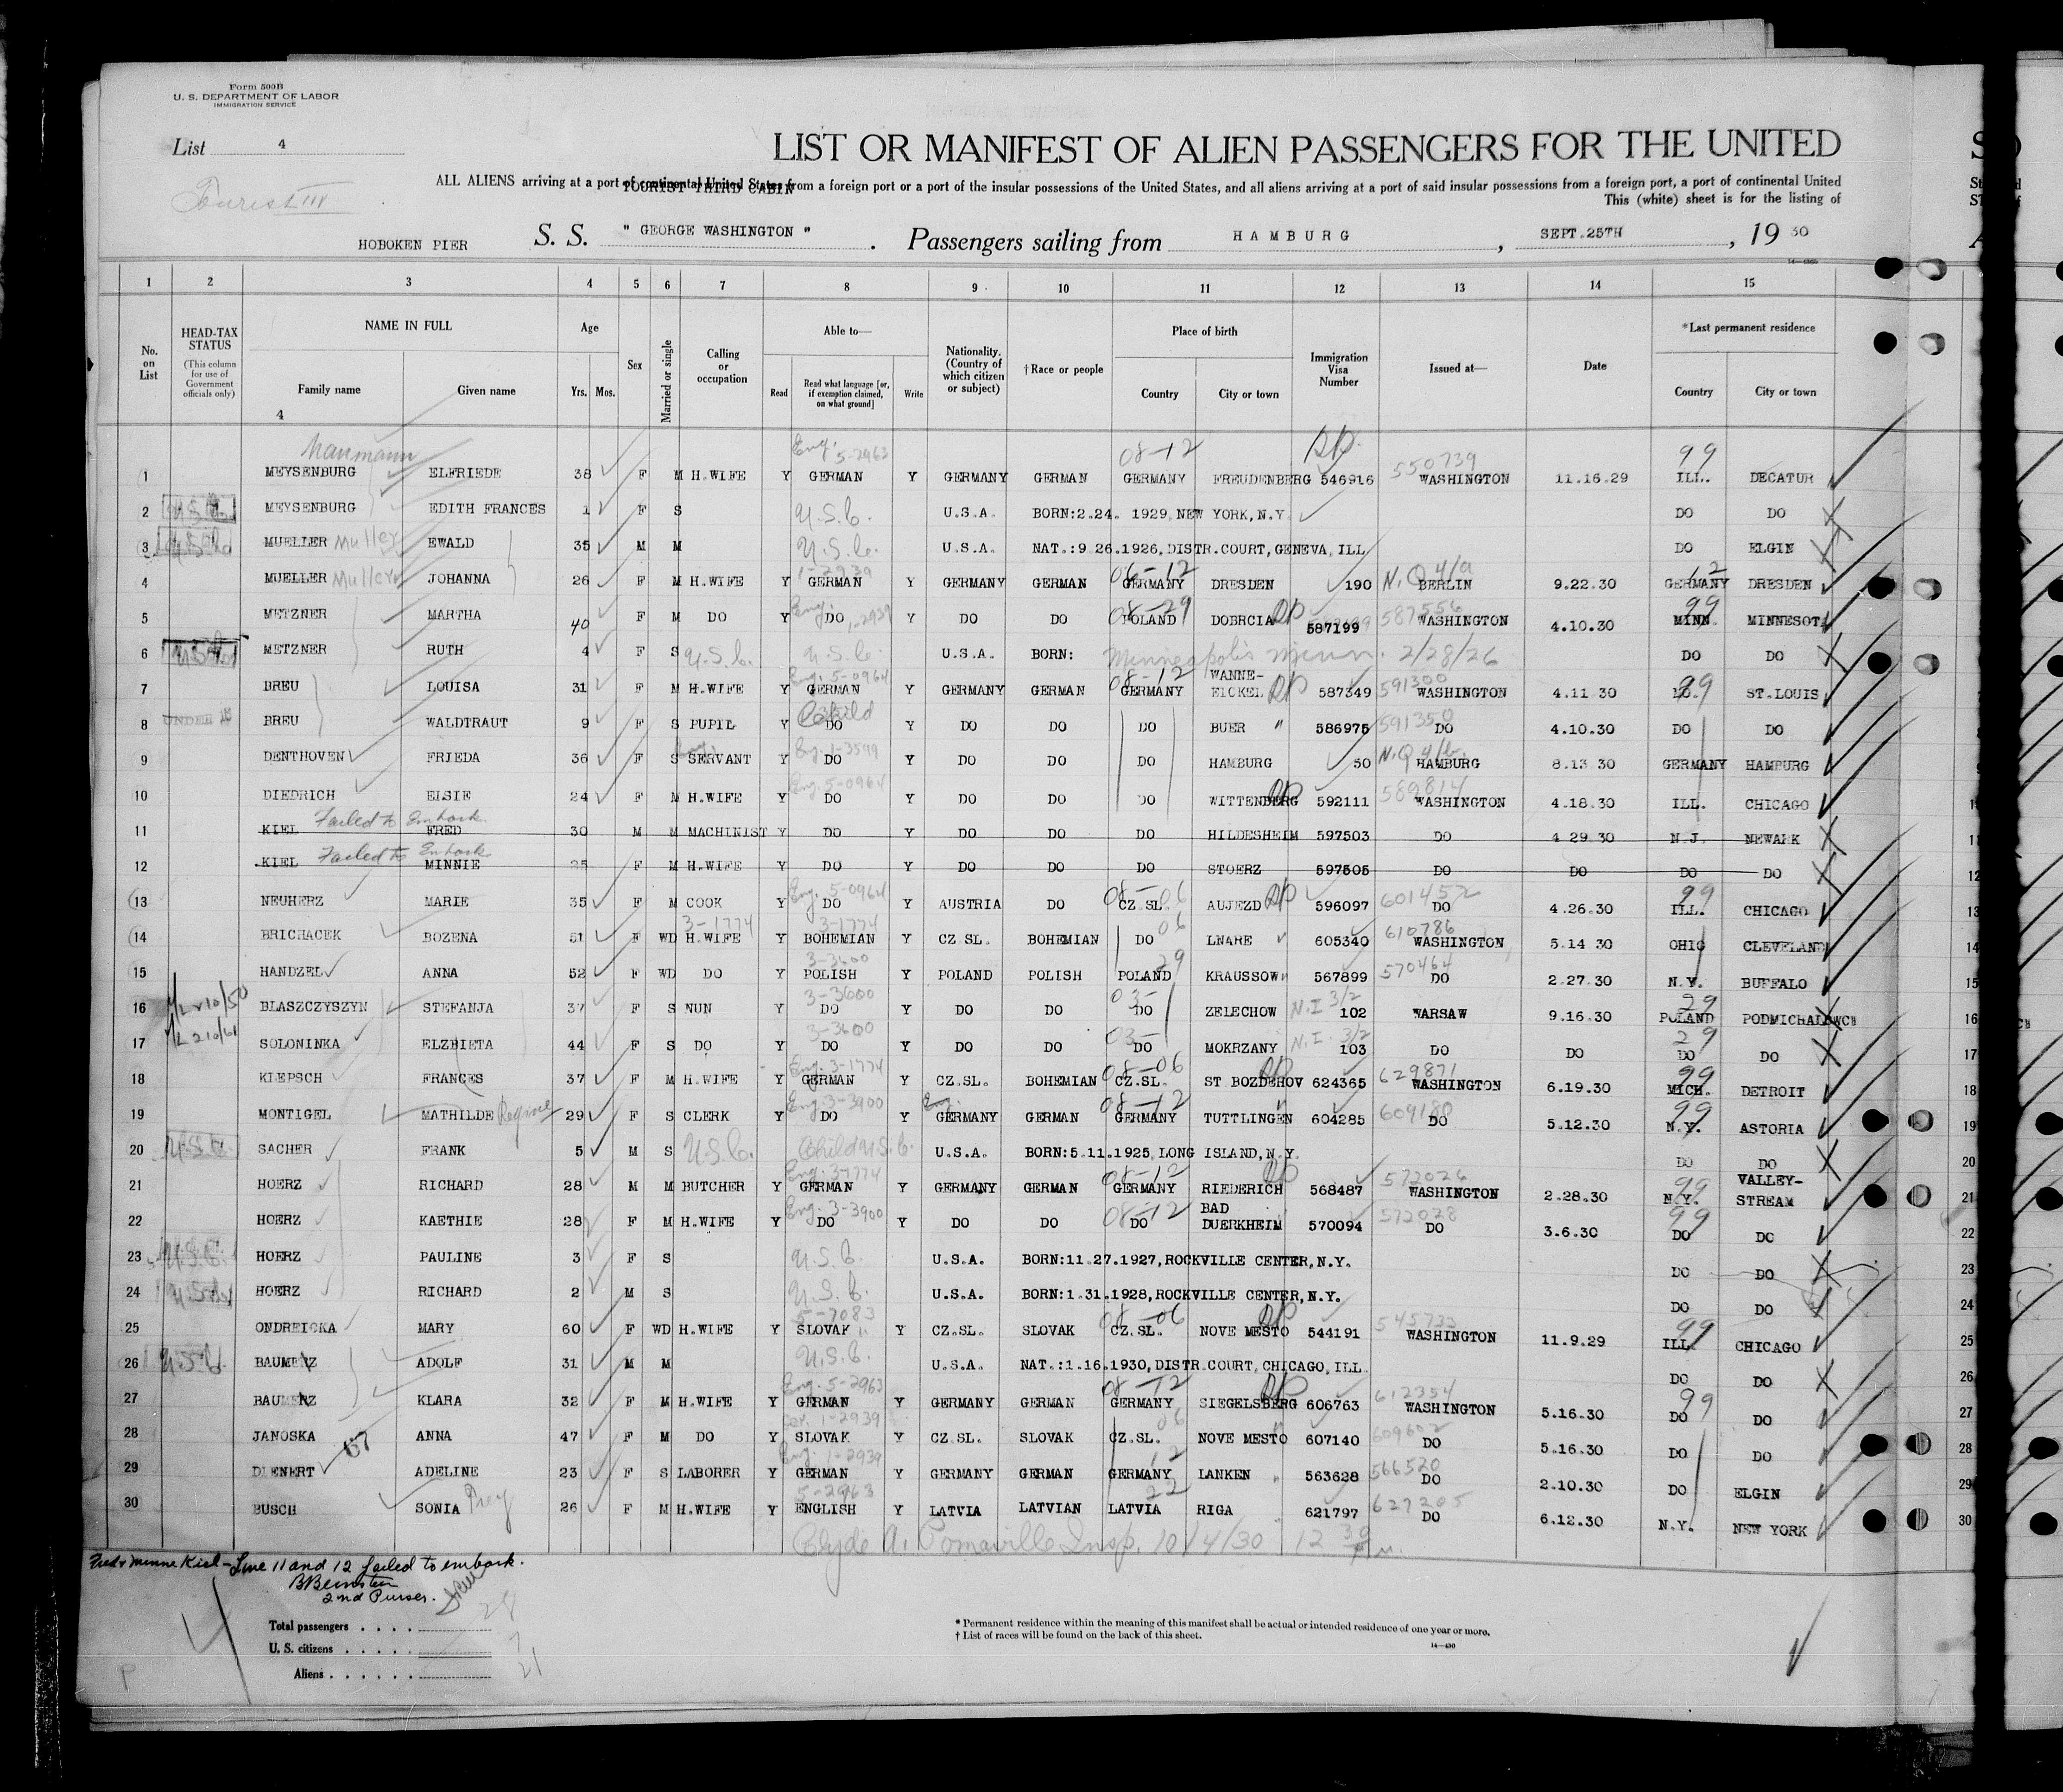 Form 500B
U. S. DEPARTMENT OF LABOR
IMMIGRATION SERVICE
List 4
Tourist III
LIST OR MANIFEST OF ALIEN PASSENGERS FOR THE UNITED
TOURIST THIRD CABIN
ALL ALIENS arriving at a port of continental United States from a foreign port or a port of the insular possessions of the United States, and all aliens arriving at a port of said insular possessions from a foreign port, a port of continental United
This (white) sheet is for the listing of
HOBOKEN PIER S. S. " GEORGE WASHINGTON " . Passengers sailing from HAMBURG , SEPT.25TH , 19 30
1 2 3 4 5 6 7 8 9 10 11 12 13 14 15
No. on List
HEAD-TAX STATUS (This column for use of Government officials only)
NAME IN FULL Family name Given name
4
Age Yrs. Mos.
Sex
Married or single
Calling or occupation
Able to— Read Read what language [or, if exemption claimed, on what ground] Write
Nationality. (Country of which citizen or subject)
† Race or people
Place of birth Country City or town
Immigration Visa Number
Issued at—
Date
*Last permanent residence Country City or town
Naumann Eng. 5-2963 08-12 550739 99
1 MEYSENBURG ELFRIEDE 38 F M H.WIFE Y GERMAN Y GERMANY GERMAN GERMANY FREUDENBERG 546916 WASHINGTON 11.16.29 ILL. DECATUR
2 MEYSENBURG EDITH FRANCES 1 F S U.S.C. U.S.A. BORN:2.24. 1929,NEW YORK,N.Y. DO DO
3 MUELLER Muller EWALD 35 M M U.S.C. U.S.A. NAT.:9.26.1926,DISTR.COURT,GENEVA,ILL. DO ELGIN
1-2939 06-12 N.Q 4/a 12
4 MUELLER Muller JOHANNA 26 F M H.WIFE Y GERMAN Y GERMANY GERMAN GERMANY DRESDEN 190 BERLIN 9.22.30 GERMANY DRESDEN
Eng. 1-2939 08-29 587556 99
5 METZNER MARTHA 40 F M DO Y DO Y DO DO POLAND DOBRCIA 587199 WASHINGTON 4.10.30 MINN. MINNESOTA
6 METZNER RUTH 4 F S U.S.C. U.S.C. U.S.A. BORN: Minneapolis Minn. 2/28/26 DO DO
Eng. 5-0964 08-12 591300 99
7 BREU LOUISA 31 F M H.WIFE Y GERMAN Y GERMANY GERMAN GERMANY WANNE-EICKEL 587349 WASHINGTON 4.11.30 ST.LOUIS
UNDER 16 Child 591350
8 BREU WALDTRAUT 9 F S PUPIL Y DO Y DO DO DO BUER " 586975 DO 4.10.30 DO DO
Eng. 1-3599 N.Q 4/b.
9 DENTHOVEN FRIEDA 36 F S SERVANT Y DO Y DO DO DO HAMBURG 50 HAMBURG 8.13.30 GERMANY HAMBURG
Eng. 5-0964 589814
10 DIEDRICH ELSIE 24 F M H.WIFE Y DO Y DO DO DO WITTENBERG 592111 WASHINGTON 4.18.30 ILL. CHICAGO
Failed to Embark
11 KIEL FRED 30 M M MACHINIST Y DO Y DO DO DO HILDESHEIM 597503 DO 4.29.30 N.J. NEWARK
Failed to Embark
12 KIEL MINNIE 25 F M H.WIFE Y DO Y DO DO DO STOERZ 597505 DO DO DO DO
Eng. 5-0964 08-06 601452 99
13 NEUHERZ MARIE 35 F M COOK Y DO Y AUSTRIA DO CZ.SL. AUJEZD 596097 DO 4.26.30 ILL. CHICAGO
3-1774 3-1774 06 610786
14 BRICHACEK BOZENA 51 F WD H.WIFE Y BOHEMIAN Y CZ SL. BOHEMIAN DO LNARE 605340 WASHINGTON 5.14.30 OHIO CLEVELAND
3-3600 29 570464
15 HANDZEL ANNA 52 F WD DO Y POLISH Y POLAND POLISH POLAND KRAUSSOW 567899 DO 2.27.30 N.Y. BUFFALO
3-3600 03- N.I 3/2 29
16 BLASZCZYSZYN STEFANJA 37 F S NUN Y DO Y DO DO DO ZELECHOW 102 WARSAW 9.16.30 POLAND PODMICHALOWCE
3-3600 03- N.I. 3/2 29
17 SOLONINKA ELZBIETA 44 F S DO Y DO Y DO DO DO MOKRZANY 103 DO DO DO DO
Eng. 3-1774 08-06 629871 99
18 KLEPSCH FRANCES 37 F M H.WIFE Y GERMAN Y CZ.SL. BOHEMIAN CZ.SL. ST BOZDEHOV 624365 WASHINGTON 6.19.30 MICH. DETROIT
Eng. 3-3900 08-12 609180 99
19 MONTIGEL MATHILDE Regine 29 F S CLERK Y DO Y GERMANY GERMAN GERMANY TUTTLINGEN 604285 DO 5.12.30 N.Y. ASTORIA
20 SACHER FRANK 5 M S U.S.C. Child U.S.C. U.S.A. BORN:5.11.1925,LONG ISLAND,N.Y. DO DO
Eng. 3-1774 08-12 572026 99
21 HOERZ RICHARD 28 M M BUTCHER Y GERMAN Y GERMANY GERMAN GERMANY RIEDERICH 568487 WASHINGTON 2.28.30 N.Y. VALLEY-STREAM
Eng. 3-3900 08-12 572028 99
22 HOERZ KAETHIE 28 F M H.WIFE Y DO Y DO DO DO BAD DUERKHEIM 570094 DO 3.6.30 DO DO
23 HOERZ PAULINE 3 F S U.S.C. U.S.A. BORN:11.27.1927,ROCKVILLE CENTER,N.Y. DO DO
24 HOERZ RICHARD 2 M S U.S.C. U.S.A. BORN:1.31.1928,ROCKVILLE CENTER,N.Y. DO DO
5-7083 08-06 545733 99
25 ONDREICKA MARY 60 F WD H.WIFE Y SLOVAK Y CZ.SL. SLOVAK CZ.SL. NOVE MESTO 544191 WASHINGTON 11.9.29 ILL. CHICAGO
26 BAUMERZ ADOLF 31 M M U.S.C. U.S.A. NAT.:1.16.1930,DISTR.COURT,CHICAGO,ILL. DO DO
Eng. 5-2963 08-12 612354 99
27 KLARA 32 F M H.WIFE Y GERMAN Y GERMANY GERMAN GERMANY SIEGELSBERG 606763 WASHINGTON 5.16.30 DO DO
1-2939 06 609602
28 JANOSKA ANNA 47 F M DO Y SLOVAK Y CZ.SL. SLOVAK CZ.SL. NOVE MESTO 607140 DO 5.16.30 DO DO
Eng 1-2939 12 566520
29 DIENERT ADELINE 23 F S LABORER Y GERMAN Y GERMANY GERMAN GERMANY LANKEN 563628 DO 2.10.30 DO ELGIN
5-2963 22 627205
30 BUSCH SONIA 26 F M H.WIFE Y ENGLISH Y LATVIA LATVIAN LATVIA RIGA 621797 DO 6.12.30 N.Y. NEW YORK
Clyde A. Pomaville Insp. 10/4/30 12 30 P.m.
Fred & Minne Kiel - Line 11 and 12 failed to embark.
2nd Purser.
Total passengers . . . . 28
U. S. citizens . . . . . 7
Aliens . . . . . . 21
* Permanent residence within the meaning of this manifest shall be actual or intended residence of one year or more.
† List of races will be found on the back of this sheet.